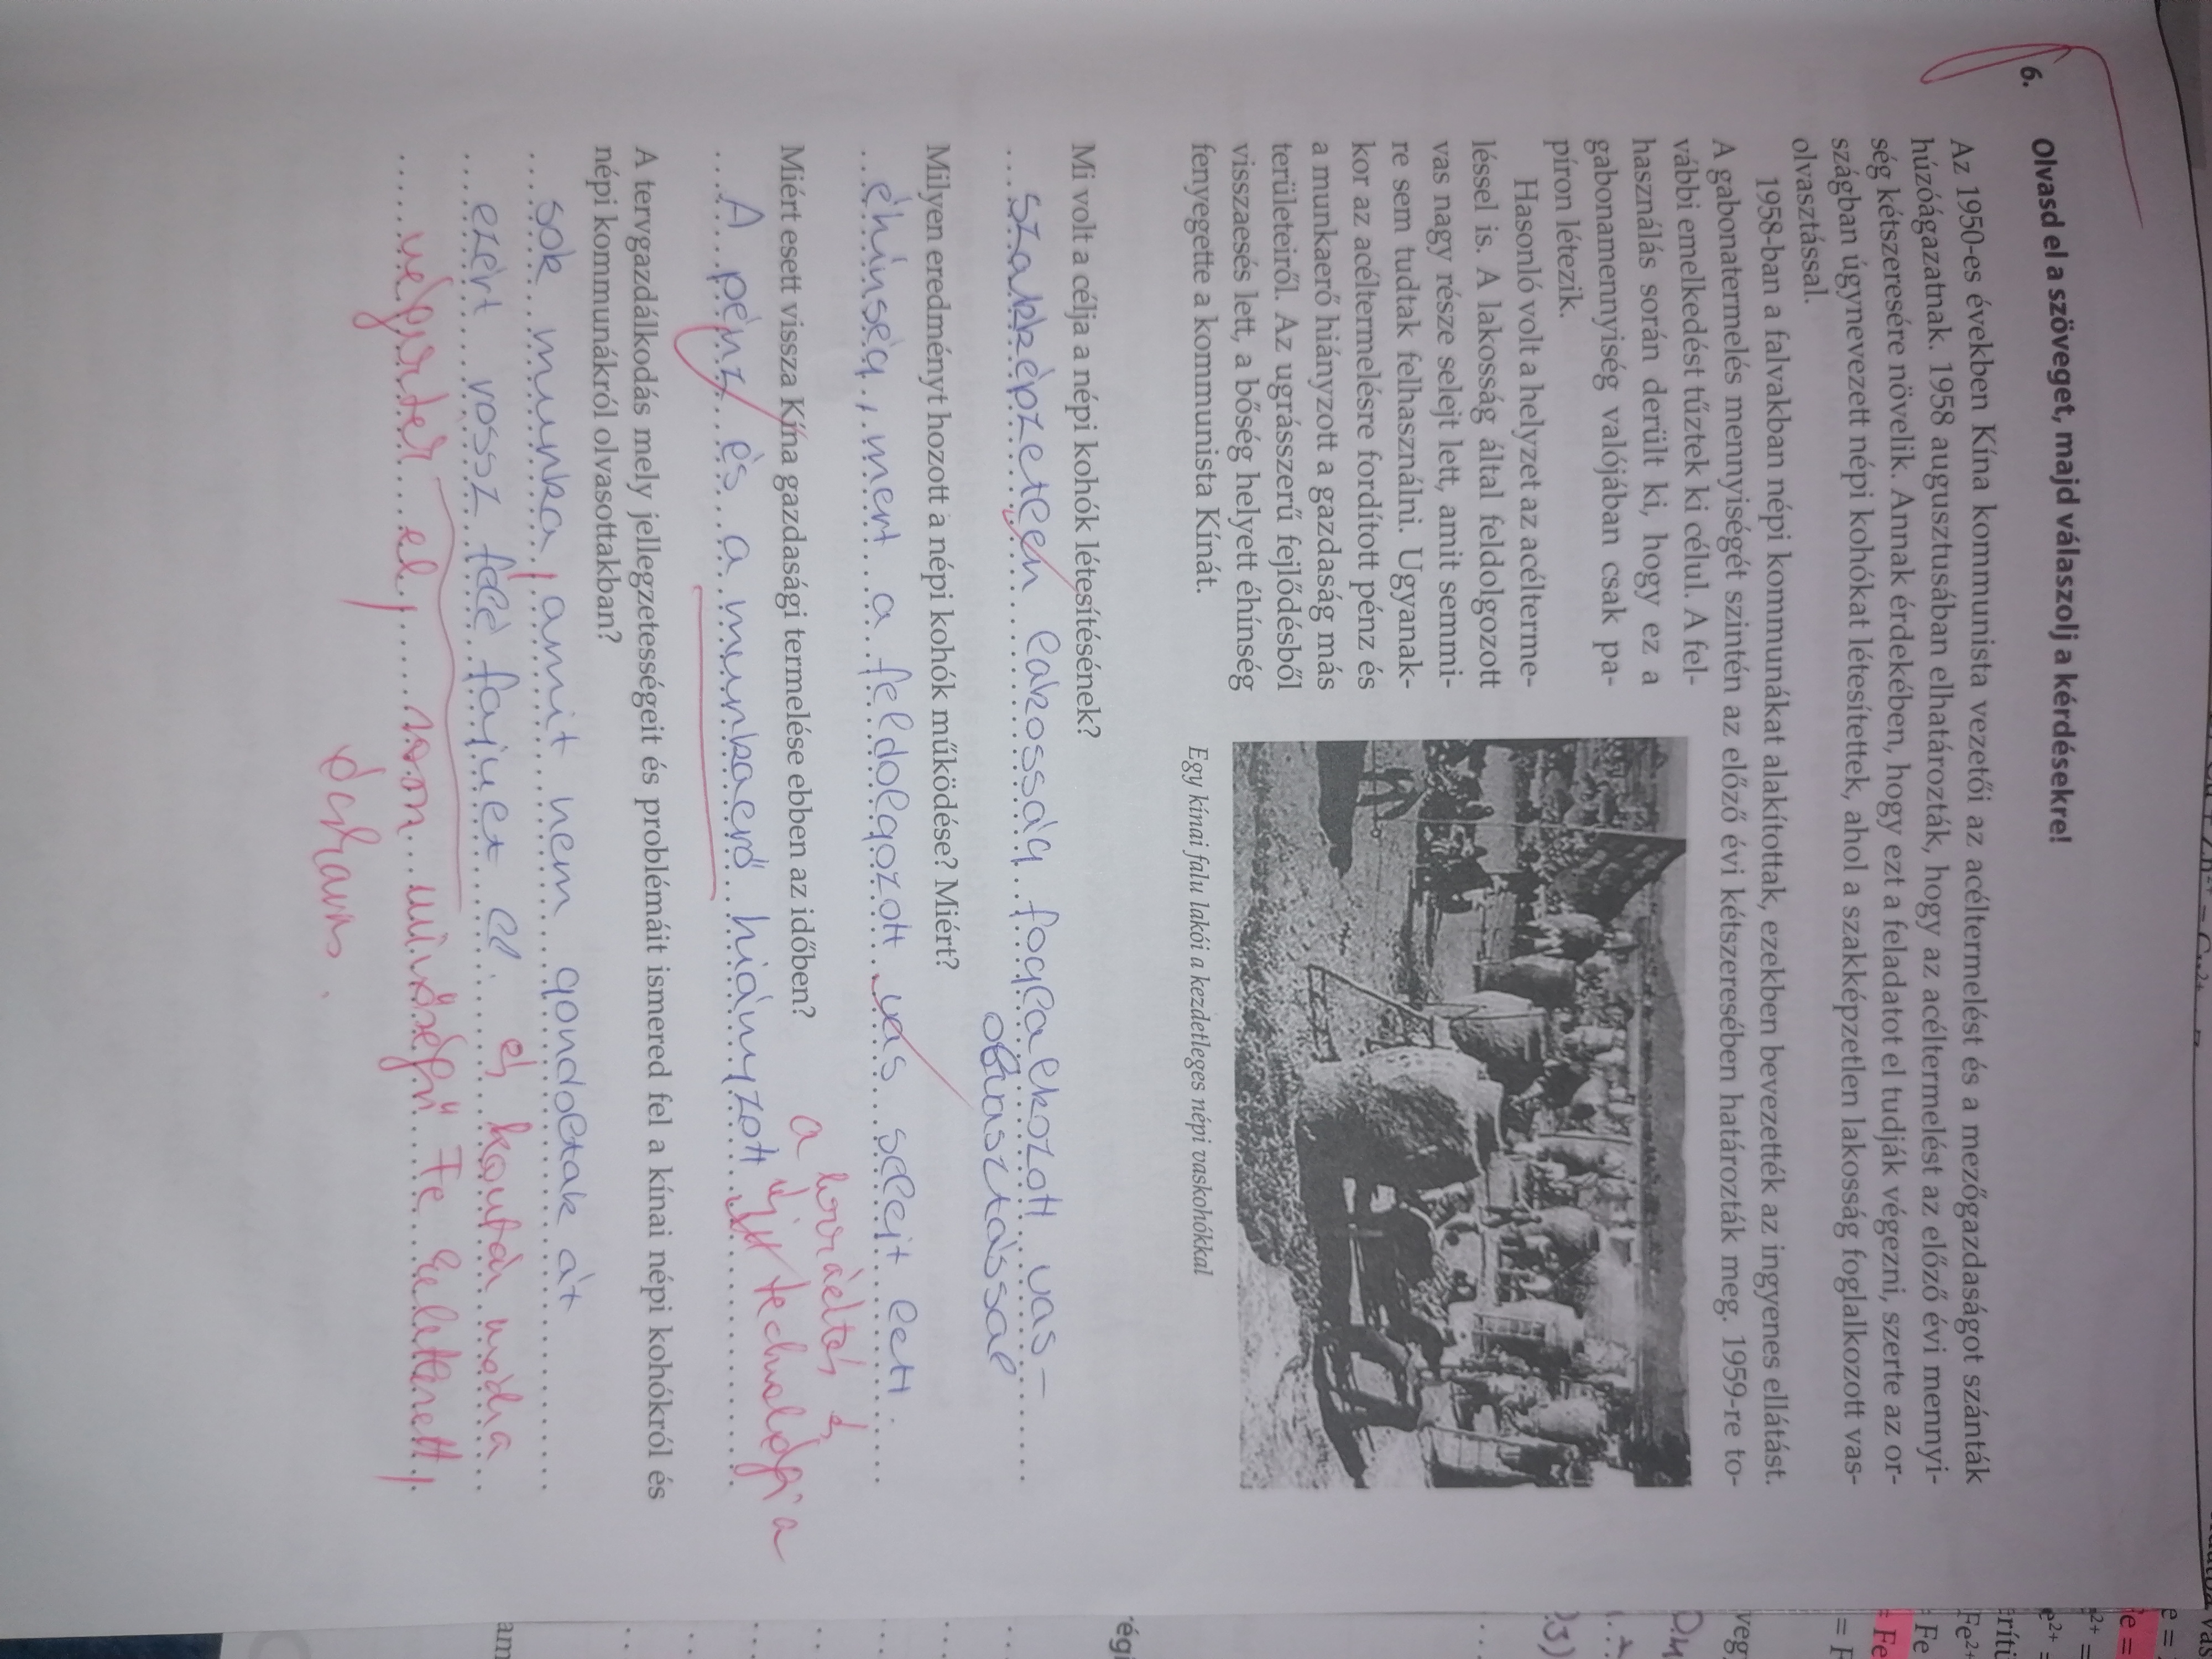 6. Olvasd el a szöveget, majd válaszolj a kérdésekre!
Az 1950-es években Kína kommunista vezetői az acéltermelést és a mezőgazdaságot szánták
húzóágazatnak. 1958 augusztusában elhatározták, hogy az acéltermelést az előző évi mennyi-
ség kétszeresére növelik. Annak érdekében, hogy ezt a feladatot el tudják végezni, szerte az or-
szágban úgynevezett népi kohókat létesítettek, ahol a szakképzetlen lakosság foglalkozott vas-
olvasztással.
1958-ban a falvakban népi kommunákat alakítottak, ezekben bevezették az ingyenes ellátást.
A gabonatermelés mennyiségét szintén az előző évi kétszeresében határozták meg. 1959-re to-
vábbi emelkedést tűztek ki célul. A fel-
használás során derült ki, hogy ez a
gabonamennyiség valójában csak pa-
píron létezik.
Hasonló volt a helyzet az acélterme-
léssel is. A lakosság által feldolgozott
vas nagy része selejt lett, amit semmi-
re sem tudtak felhasználni. Ugyanak-
kor az acéltermelésre fordított pénz és
a munkaerő hiányzott a gazdaság más
területeiről. Az ugrásszerű fejlődésből
visszaesés lett, a bőség helyett éhínség
fenyegette a kommunista Kínát.
Egy kínai falu lakói a kezdetleges népi vaskohókkal
Mi volt a célja a népi kohók létesítésének?
szakképzeteen lakosság foglalkozott vas-
olvasztással
Milyen eredményt hozott a népi kohók működése? Miért?
éhínség, mert a feldolgozott vas selejt lett.
Miért esett vissza Kína gazdasági termelése ebben az időben?
A pénz és a munkaerő hiányzott
a korráeltos
technológia
A tervgazdálkodás mely jellegzetességeit és problémáit ismered fel a kínai népi kohókról és
népi kommunákról olvasottakban?
sok munka, amit nem gondoltak át
ezért rossz felé fajulet el és kontár módra
végeztek el, rossz minőségű Fe keletkezett,